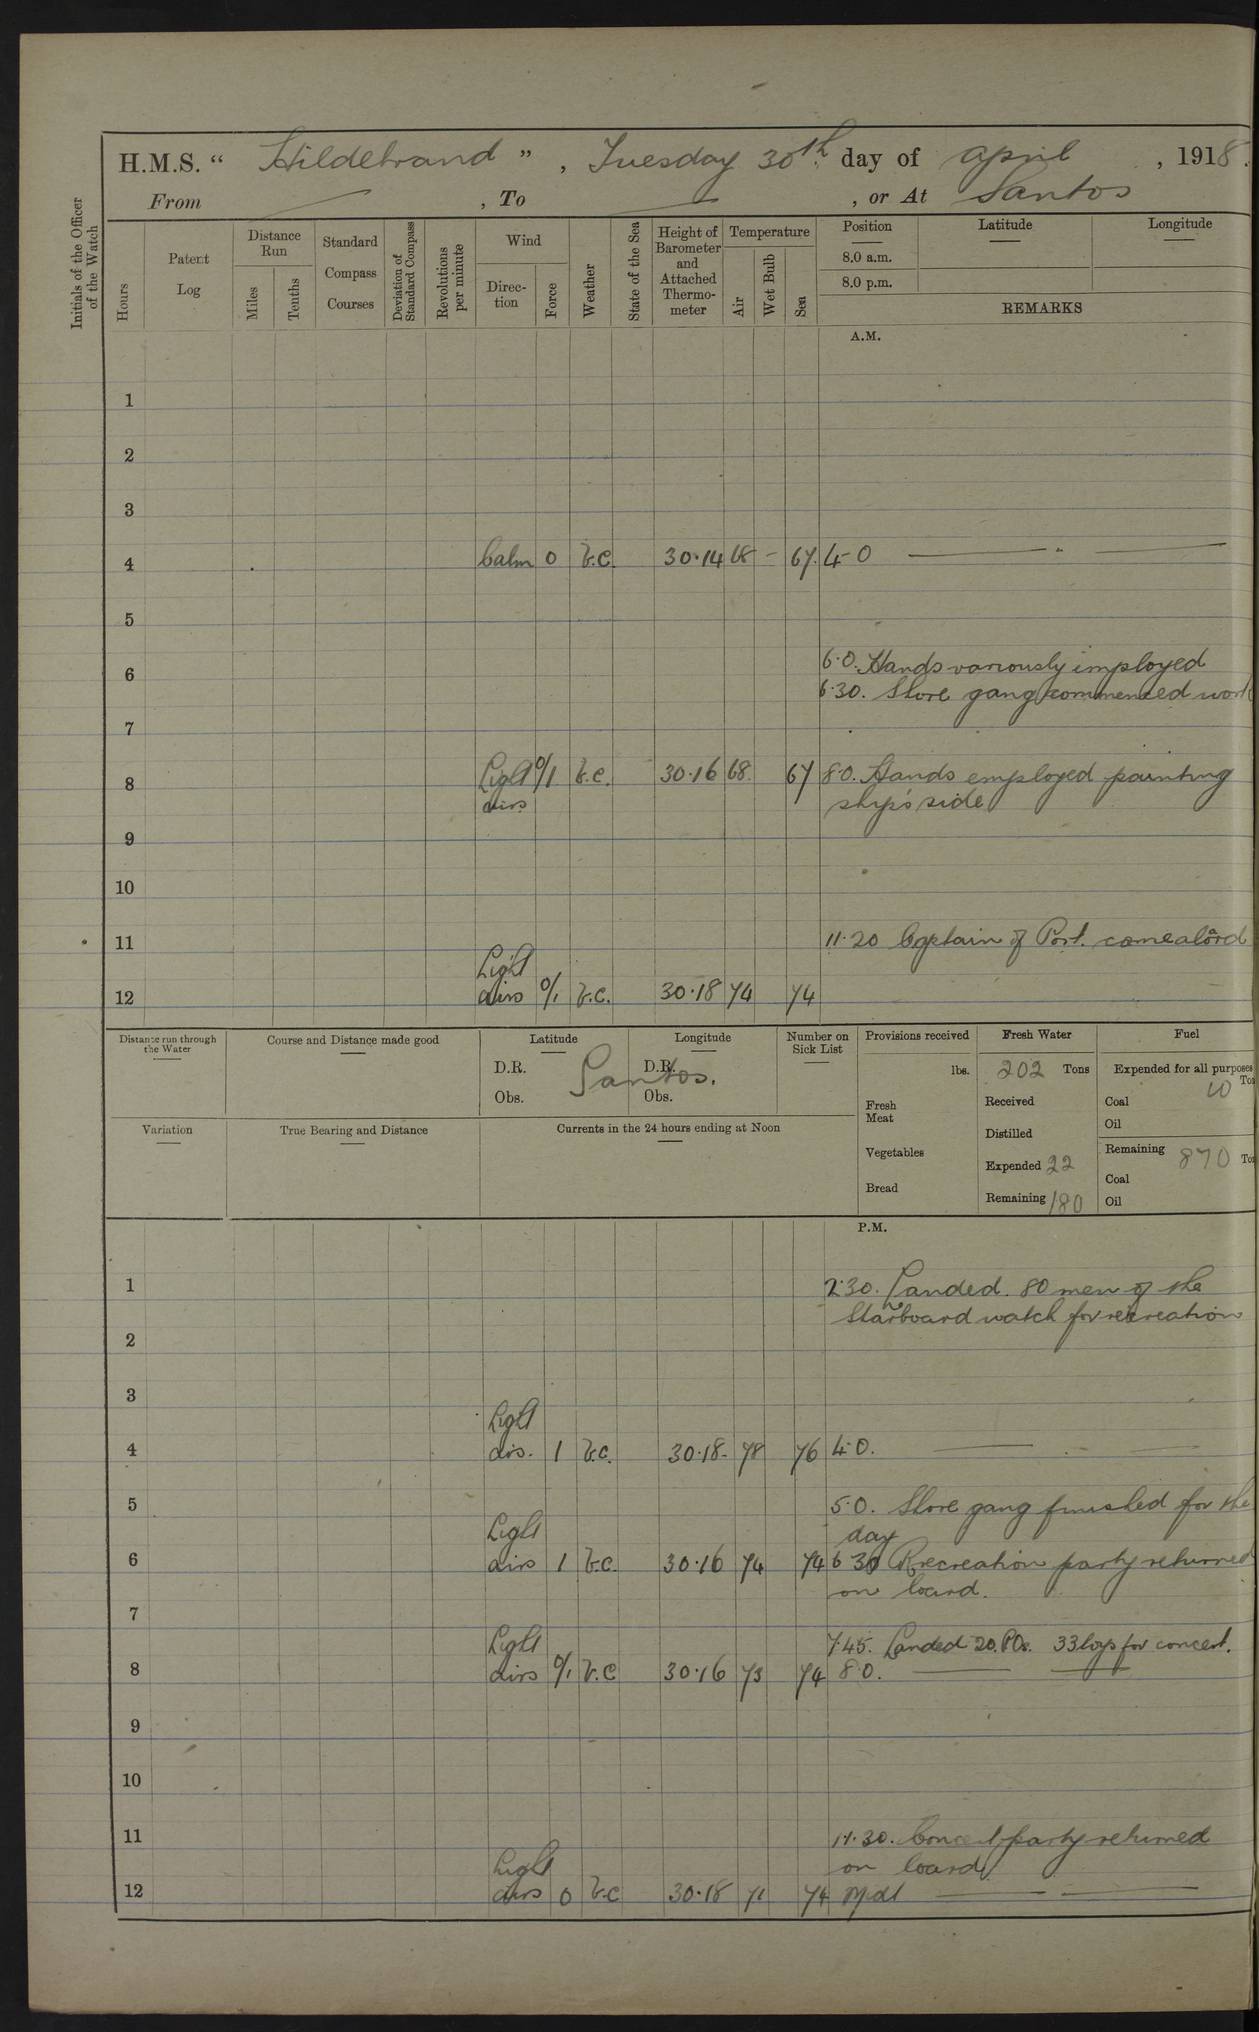 H.M.S. “ Hildebrand ” , Tuesday 30th day of April , 1918.
From , To , or At Santos
Initials of the Officer of the Watch
Hours
Patent Log
Distance Run
Miles
Tenths
Standard Compass Courses
Deviation of Standard Compass
Revolutions per minute
Wind
Direction
Force
Weather
State of the Sea
Height of Barometer and Attached Thermometer
Temperature
Air
Wet Bulb
Sea
Position
8.0 a.m.
8.0 p.m.
Latitude
Longitude
REMARKS
A.M.
1
2
3
4 Calm 0 b.c. 30.14 68 – 67. 4-0 — " —
5
6 6.0. Hands variously employed
6.30. Shore gang commenced work
7
8 Light airs 0/1 b.c. 30.16 68. 67 8.0. Hands employed painting
ship's side
9
10
11 11.20 Captain of Port. came aboard
12 Light airs 0/1 b.c. 30.18 74 74
Distance run through the Water
Course and Distance made good
Latitude
D.R.
Obs.
Santos.
Longitude
D.R.
Obs.
Number on Sick List
Provisions received
lbs.
Fresh Meat
Vegetables
Bread
Fresh Water
202 Tons
Received
Distilled
Expended 22
Remaining 180
Fuel
Expended for all purposes
10 Ton
Coal
Oil
Remaining 870 Ton
Coal
Oil
Variation
True Bearing and Distance
Currents in the 24 hours ending at Noon
P.M.
1 2.30. Landed. 80 men of the
Starboard watch for recreation
2
3
4 Light airs. 1 b.c. 30.18- 78 76 4.0. —
5 5.0. Shore gang finished for the
day
6 Light airs 1 b.c. 30.16 74 74 6 30 Recreation party returned
on board.
7 7.45. Landed 20. POs. 33 boys for concert.
8 Light airs 0/1 b.c 30.16 73 74 8.0. —
9
10
11 11.30. Concert party returned
on board
12 Light airs 0 b.c 30.18 71 74 Mdt —